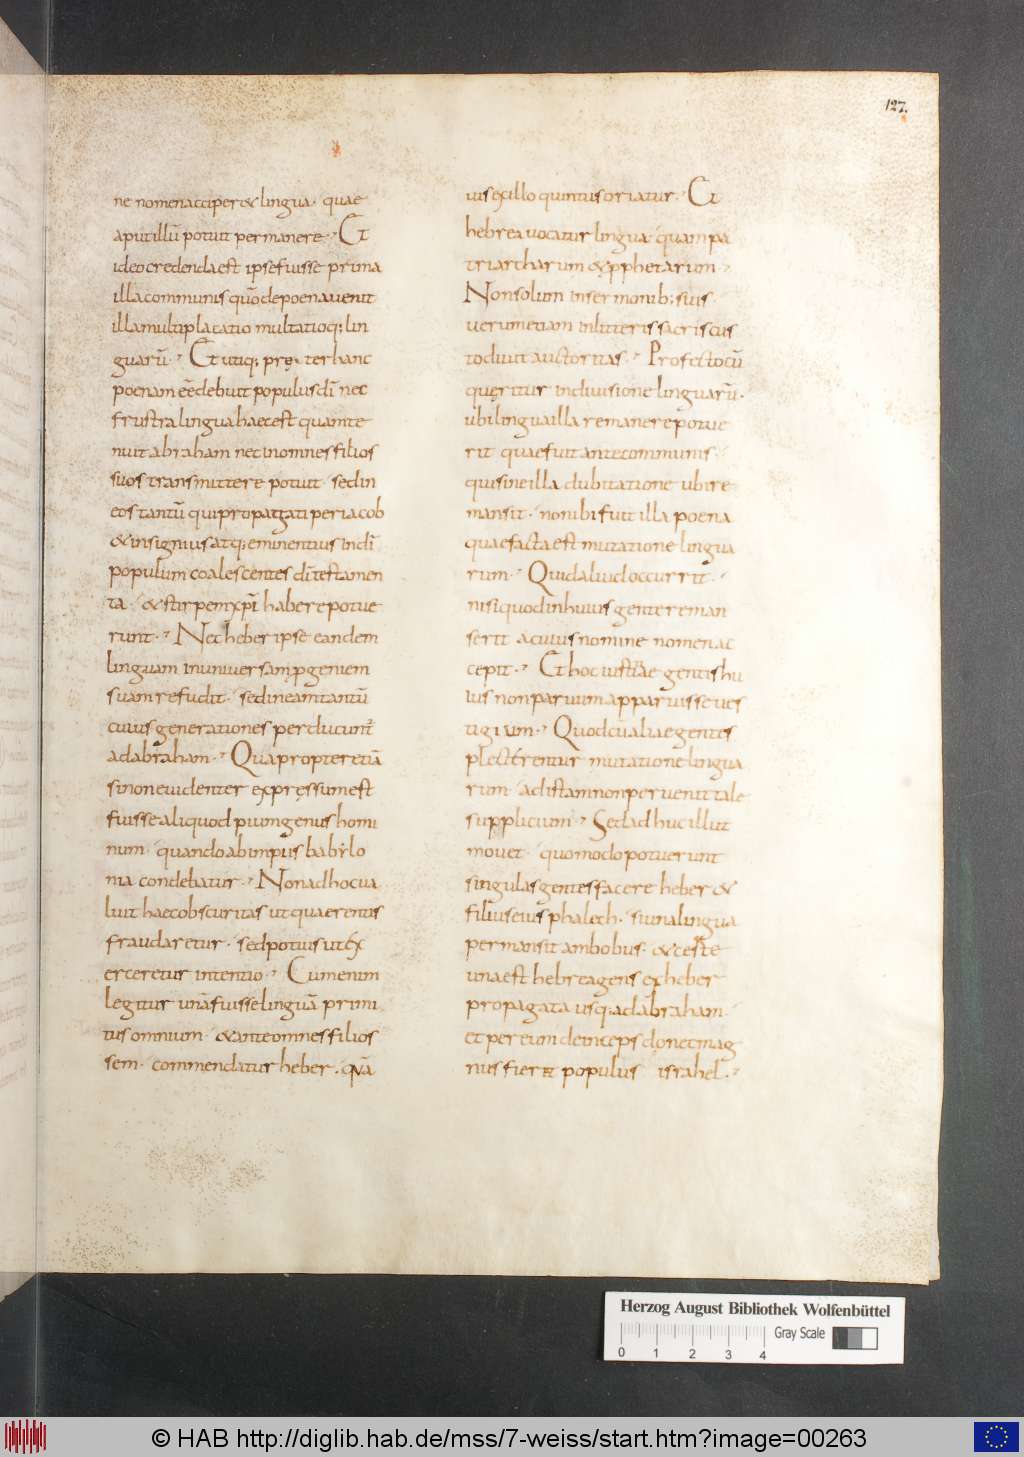 127.
ne nomen acciper& lingua· quae
aput illū potuit permanere· Et
ideo credenda est ipse fuisse prima
illa communis quō de poena uenit
illa multiplacatio multatioq; lin
guarū· Et utiq; pręter hanc
poenam eē debuit populus dī nec
frustra lingua haec est quam te
nuit abraham nec in omnes filios
suos transmittere potuit sed in
eos tantū qui propagati per iacob
& insignius atq; eminentius in dī
populum coalescentes dī testamen
ta· & stirpem xp̄i habere potue
runt· Nec heber ipse eandem
linguam in uniuersam progeniem
suam refudit· sed in eam tantū
cuius generationes perducunt̄
ad abraham· Quapropter etiā
si non euidenter expressum est
fuisse aliquod pium genus homi
num· quando ab impiis babylo
nia condebatur· Non ad hoc ua
luit haec obscuritas ut quaerentis
fraudaretur· sed potius ut ex
erceretur intentio· Cum enim
legitur unā fuisse linguā primi
tus omnium· & ante omnes filios
sem· commendatur heber· quā
uis ex illo quintus oriatur· Et
hebrea uocatur lingua· quam pa
triarcharum & pphetarum
Non solum in sermonib; suis
uerum etiam in litteris sacris cus
todiuit auctoritas· Profecto cū
quęritur in diuisione linguarū·
ubi lingua illa remanere potue
rit quae fuit ante communis
qui sine illa dubitatione ubi re
mansit· non ibi fuit illa poena
quae facta est mutatione lingua
rum· Quid aliud occurrit
nisi quod in huius gente reman
serit a cuius nomine nomen ac
cepit· Et hoc iustitiae gentis hu
ius non paruum apparuisse ues
tigium· Quod cu aliae gentes
plecterentur mutatione lingua
rum· ad istam non peruenit tale
supplicium· Sed adhuc illut
mouet· quomodo potuerunt
singulas gentes facere heber &
filius eius phalech· si una lingua
permansit ambobus· & certe
una est hebrea gens ex heber
propagata usq; ad abraham·
et per eum deinceps donec mag
nus fieret populus israhel·
Herzog August Bibliothek Wolfenbüttel
Gray Scale
0 1 2 3 4
© HAB http://diglib.hab.de/mss/7-weiss/start.htm?image=00263